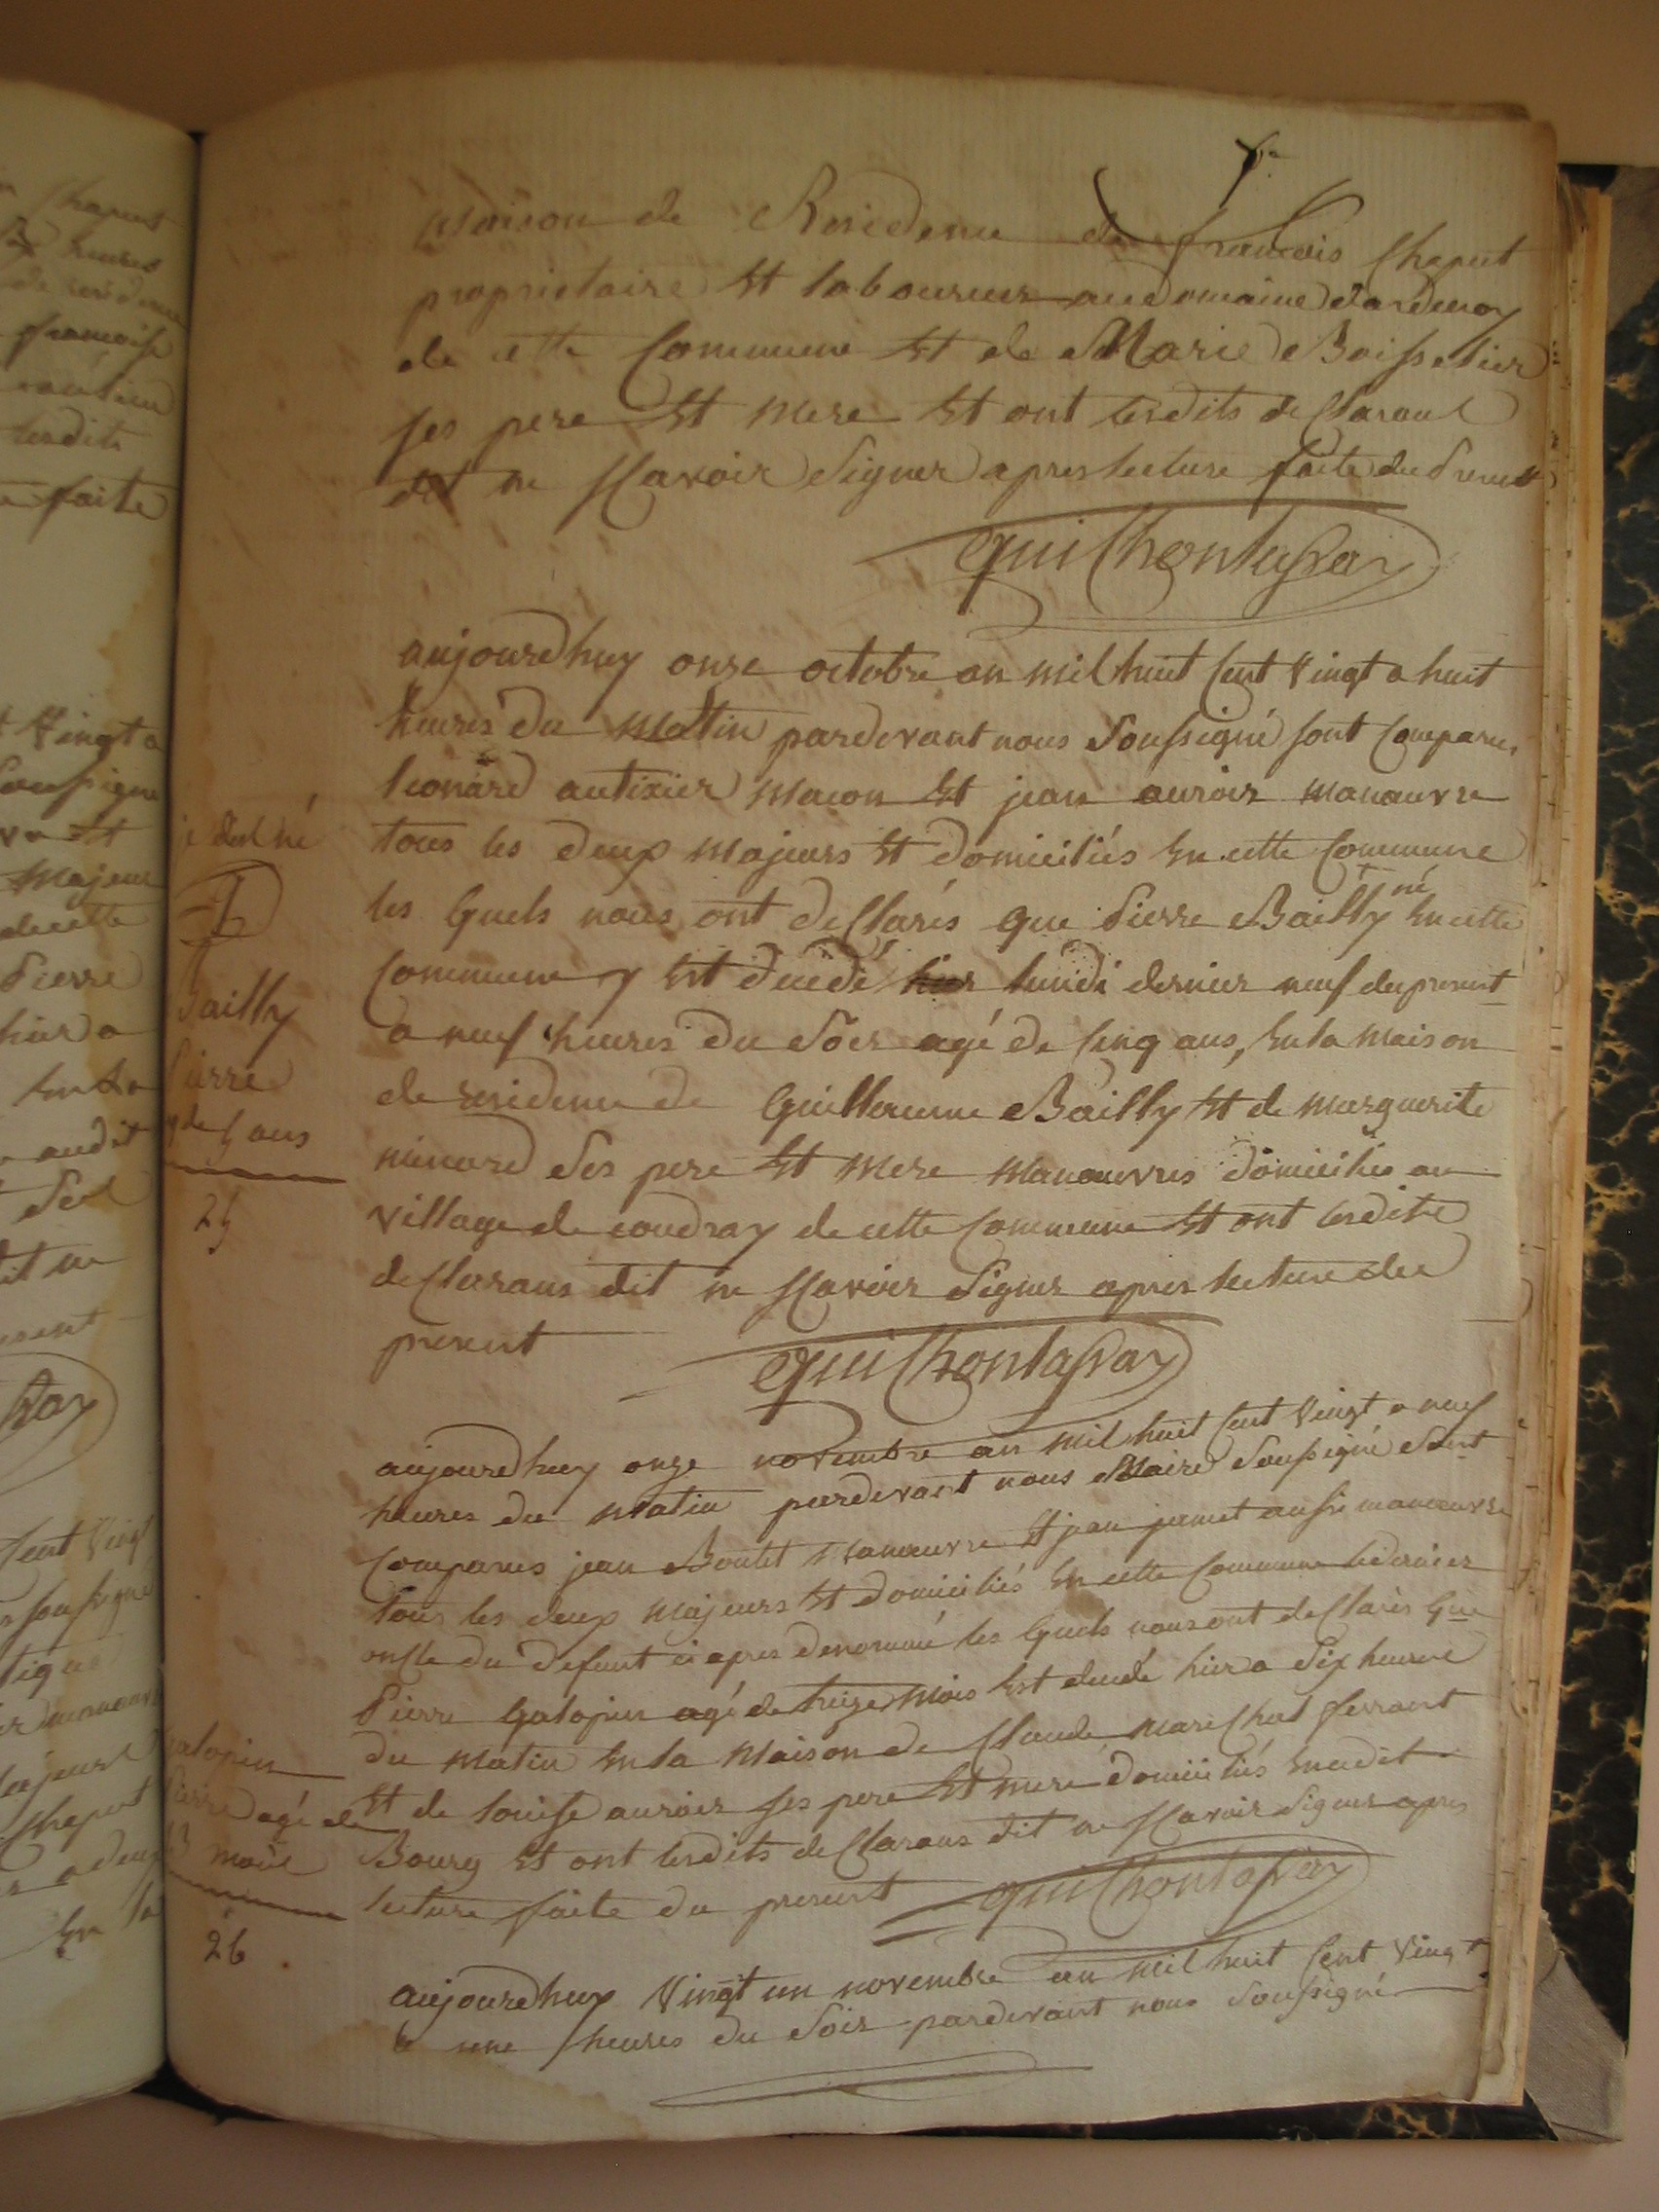 maison de Residence de francois Chaput
propriotaire Et laboureur au domaine dardenay
de cette Commune Et de Marie Boisselier
ses pere Et mere Et ont lesdits desClarant
dit ne sCavoir Signer apres lecture faite du present
aujourdhuy onze octobre an mil huit Cent Vingt a huit
heures du matin pardevant nous Soussigné sont Comparus
leonard autixier macon Et jean auroir manœuvre
tous les deux majeurs Et domiciliés En cette Commune
les quels nous ont deClarés que Pierre Bailly né En cette
Commune y Est decedé hier lundi dernier neuf du present
a neuf heures du Soir agé de Cinq ans, En la maison
de residence de Guilleaume Bailly Et de marguerite
menard Ses pere Et mere manœuvres domiciliés au
village de coudray de cette Commune Et ont lesdits
deClarans dit ne sCavoir Signer apres lecture du
present
aujourdhuy onze novembre an mil huit Cent Vingt a neuf
heures du matin pardevant nous Maire Soussigné Sont
Comparus jean Boulet manœuvre Et jean jamet aussi manœuvre
tous les deux majeurs Et domiciliés En cette Commune le dernier
onCle du defunt ci apres denommé les quels nous ont deClarés que
Pierre Galopin agé de treize mois Est decedé hier a dix heures
du matin En la maison de Claude mareChal ferrant
Et de louise auroir ses pere Et mere domiciliés En cedit
Bourg Et ont lesdits deClarans dit ne sCavoir Signer apres
lecture faite du present
aujourdhuy Vingt un novembre an mil huit Cent Vingt
a une heures du Soir pardevant nous Soussigné
né
Bailly
Pierre
de 5 ans
25
Galopin
Pierre agé de
13 mois
26